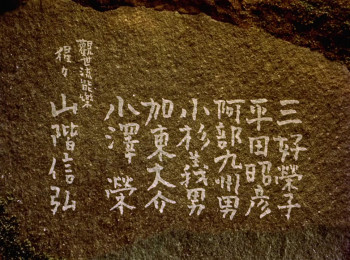 三好榮子
平田昭彦
阿部九州男
小杉義男
加東大介
小澤榮
觀世流能樂
猩々
山階信弘